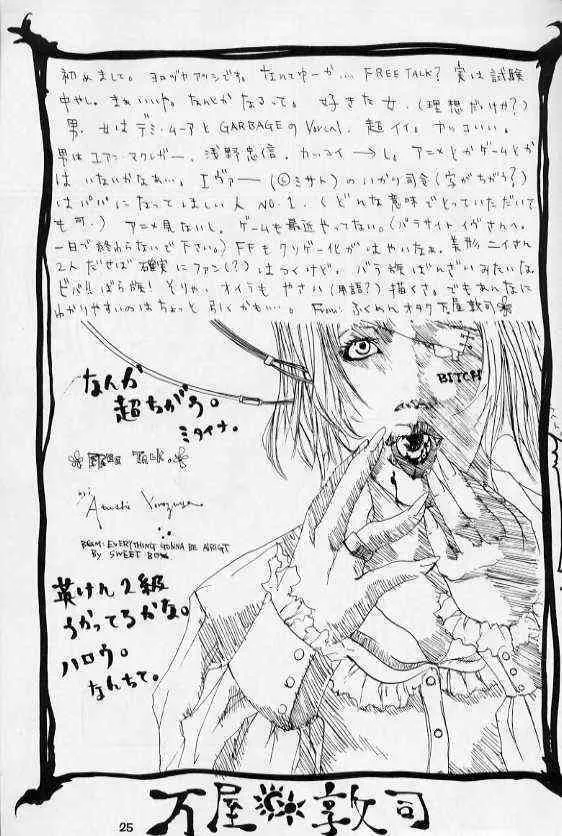 初めまして。ヨロヅヤアツシです。なんてゆーか… FREE TALK? 実は試験
中やし。まぁいいけ。なんとかなるって。好きな女、(理想だけか?)
男。女はデミ・ムーアとGARBAGEのVocal。超イイ。カッコいい。
男はユアン・マクレガー、浅野忠信。カッコイーし。アニメとかゲームとか
はいないかなぁ…。エヴァー(©ミサト)のいかり司令(字がちがう?)
はパパになってほしい人NO.1。(どんな意味でとっていただいて
も可。) アニメ見ないし、ゲームも最近やってない。(パラサイトイヴさんへ。
一日で終わらないで下さい。) FFもクソゲー化がはやいなぁ。美形ニイさん
2人だせば確実にファン(?)はつくけど。バラ族ばんざいみたいな。
ビバ!!ばら族! そりゃ、オイラもやさい(用語?)描くさ。でもあんなに
わかりやすいのはちょっと引くかも…。From: ふくめんオタク万屋敦司
BITCH
なんか
超ちがう。
ミタイナ。
FREE TALK.
by:
Atsushi Yorozuya
BGM: EVERYTHING GONNA BE ALRIGT
BY SWEET BOX.
英けん2級
うかってるかな。
ハロウ。
なんちて。
25
万屋 敦司